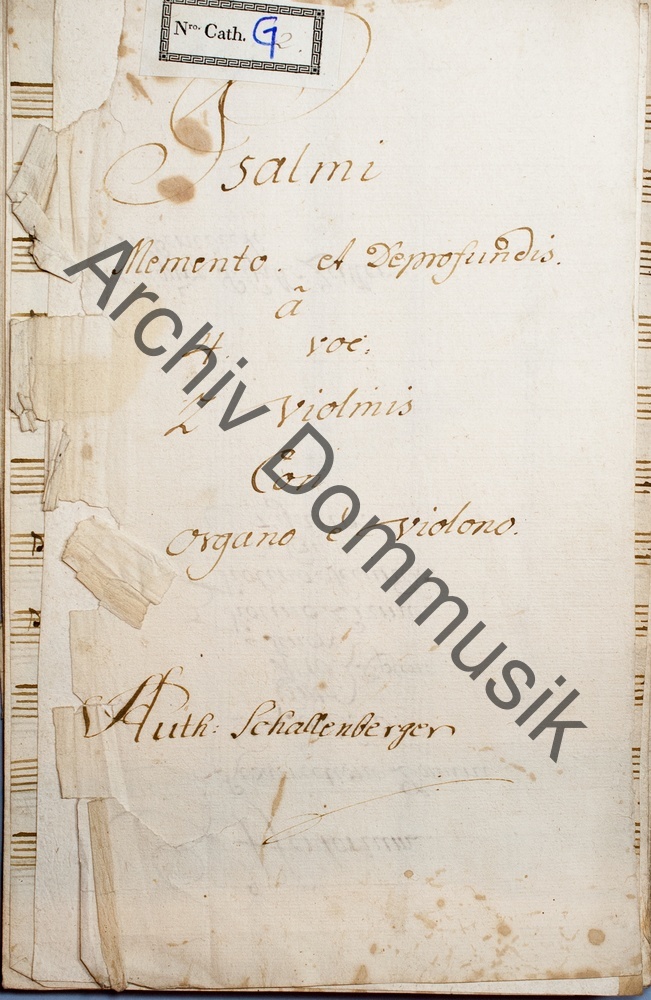 Nro. Cath. G 2.
Psalmi
Memento. et Deprofundis.
â
4. voc:
2 Violinis
Con
Organo è Violono.
Auth: Schallenberger
Archiv Dommusik